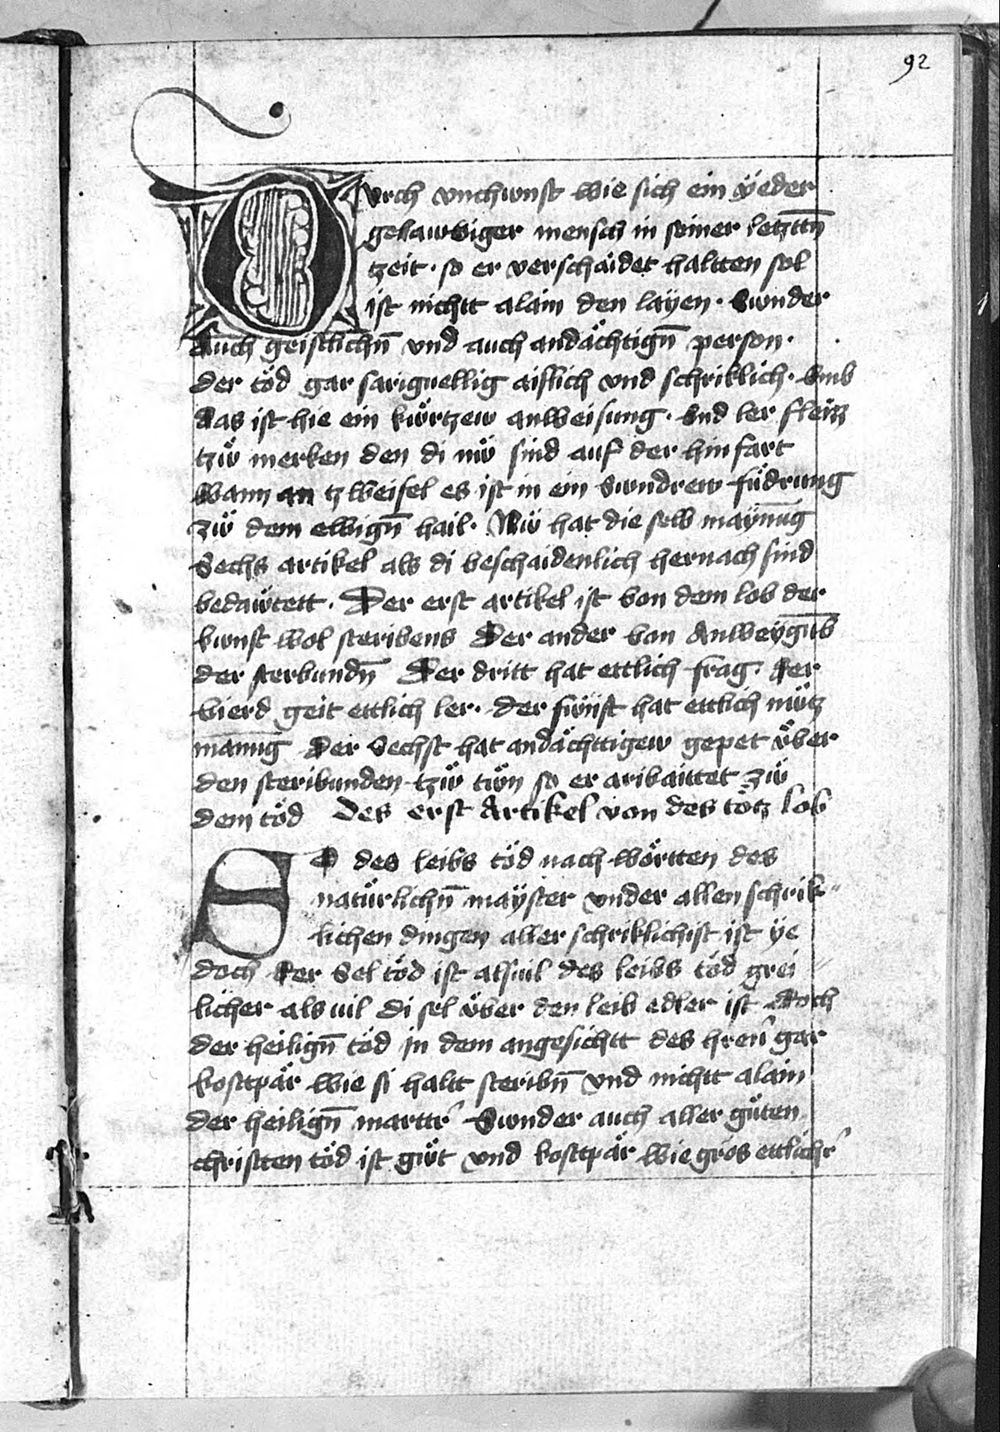 92
Durch vnchunst wie sich ein yeder
gelawbiger mensch in seiner letzttn̄
tzeit · so er verschaidet haltten sol
ist nichtt alain den layen · Sunder
Auch geistlichn̄ vnd auch andächtign̄ person ·
der töd gar sariguellig aislich vnd schriklich · Vmb
das ist hie ein kürtzew anweisung · Vnd ler fleitz
tzw̋ merken den di nw̋ sind auf der hinfart
Wann an tzweifel es ist in ein Sundrew füdrung
zw̋ dem ewign̄ hail · Nw̋ hat die selb maynūg
Sechs artikel als di beschaidenlich hernach sind
bedawtett · Der erst artikel ist von dem lob der
kunst wol steribens Der ander von Anweygūb
der sterbundn̄ Der dritt hat ettlich frag · Der
vierd geit ettlich ler · der fünft hat ettlich nütz
manūg Der Sechst hat andächttigew gepet über
den steribunden tzw̋ tw̋n so er aribaittet zw̋
dem töd Des erst Artikel von des tötz lob
So des leibs töd nach wörtten des
natürlichn̄ mayster vnder allen schrik=
lichen dingen aller schriklichist ist ye
doch Der Sel töd ist alsuil des leibs töd grei=
licher als uil di sel über den leib edler ist Doch
der heilign̄ töd in dem angesichtt des hren̄ gar
kosttpär wie si haltt steribn̄ vnd nichtt alain
der heilign̄ marttr̄ Sunder auch aller güten
christten töd ist güt vnd kosttpär wie gros ettlichr̄